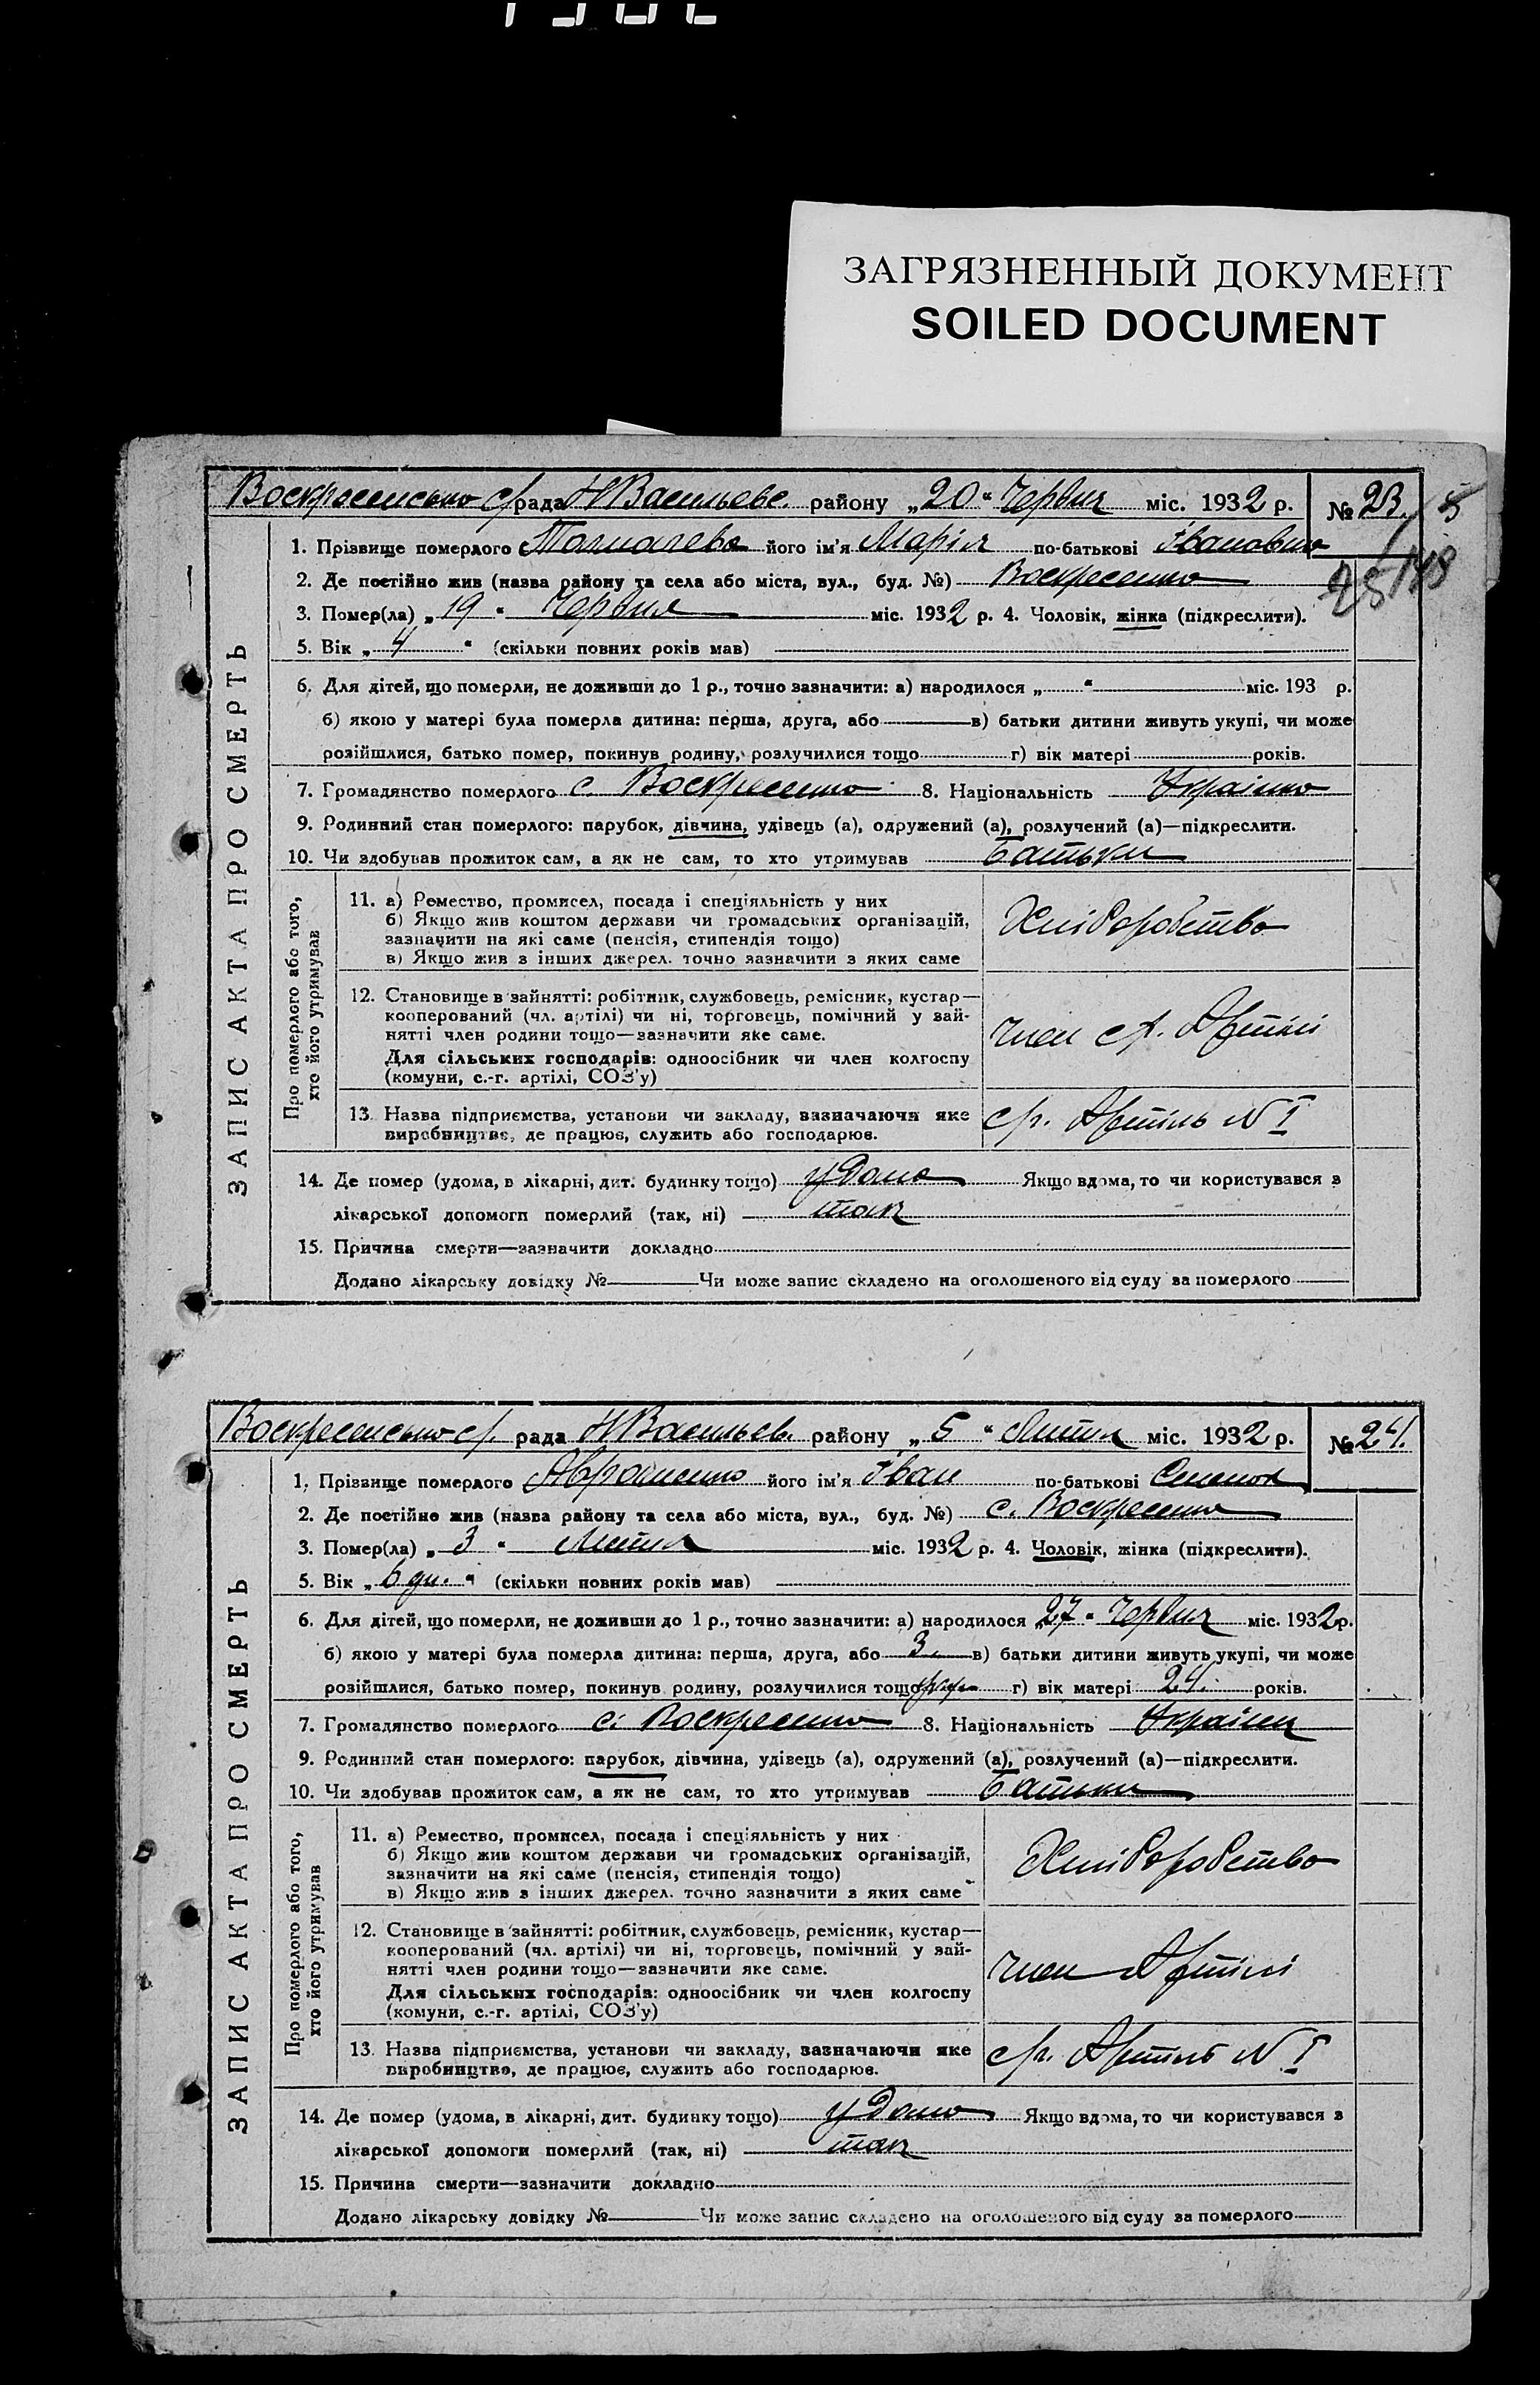 ЗАГРЯЗНЕННЫЙ ДОКУМЕНТ
SOILED DOCUMENT
Воскресенська с/рада Н Васильевс. району „20" Червня міс. 1932 р. № 23.
1. Прізвище померлого Толмачева його ім'я Марія по-батькові Івановна
2. Де постійно жив (назва району та села або міста, вул., буд. №) Воскресенка
3. Помер(ла) „19" Червня міс. 1932 р. 4. Чоловік, жінка (підкреслити).
5. Вік „4" (скільки повних років мав)
6. Для дітей, що померли, не доживши до 1 р., точно зазначити: а) народилося „ " міс. 193 р.
б) якою у матері була померла дитина: перша, друга, або в) батьки дитини живуть укупі, чи може
розійшлися, батько помер, покинув родину, розлучилися тощо г) вік матері років.
7. Громадянство померлого с. Воскресенка 8. Національність Українка
9. Родинний стан померлого: парубок, дівчина, удівець (а), одружений (а), розлучений (а)—підкреслити.
10. Чи здобував прожиток сам, а як не сам, то хто утримував батьки
ЗАПИС АКТА ПРО СМЕРТЬ
Про померлого або того, хто його утримував
11. а) Ремество, промисел, посада і спеціяльність у них
б) Якщо жив коштом держави чи громадських організацій,
зазначити на які саме (пенсія, стипендія тощо)
в) Якщо жив з інших джерел. точно зазначити з яких саме
Хліборобство
12. Становище в зайнятті: робітник, службовець, ремісник, кустар—
кооперований (чл. артілі) чи ні, торговець, помічний у зай-
нятті член родини тощо—зазначити яке саме.
Для сільських господарів: одноосібник чи член колгоспу
(комуни, с.-г. артілі, СОЗ'у)
член с/г. Артілі
13. Назва підприємства, установи чи закладу, зазначаючи яке
виробництво, де працює, служить або господарює.
с/г. Артіль N I
14. Де помер (удома, в лікарні, дит. будинку тощо) удома Якщо вдома, то чи користувався з
лікарської допомоги померлий (так, ні) так
15. Причина смерти—зазначити докладно
Додано лікарську довідку № Чи може запис складено на оголошеного від суду за померлого
Воскресенська с/. рада Н Васильев. району „5" Липня міс. 1932 р. № 24.
1. Прізвище померлого Авраменко його ім'я Іван по-батькові
2. Де постійно жив (назва району та села або міста, вул., буд. №) с. Воскресенка
3. Помер(ла) „3" Липня міс. 1932 р. 4. Чоловік, жінка (підкреслити).
5. Вік „6 дн." (скільки повних років мав)
6. Для дітей, що померли, не доживши до 1 р., точно зазначити: а) народилося „27" Червня міс. 1932 р.
б) якою у матері була померла дитина: перша, друга, або 3. в) батьки дитини живуть укупі, чи може
розійшлися, батько помер, покинув родину, розлучилися тощо г) вік матері 24. років.
7. Громадянство померлого с. Воскресенка 8. Національність Українец
9. Родинний стан померлого: парубок, дівчина, удівець (а), одружений (а), розлучений (а)—підкреслити.
10. Чи здобував прожиток сам, а як не сам, то хто утримував батьки
ЗАПИС АКТА ПРО СМЕРТЬ
Про померлого або того, хто його утримував
11. а) Ремество, промисел, посада і спеціяльність у них
б) Якщо жив коштом держави чи громадських організацій,
зазначити на які саме (пенсія, стипендія тощо)
в) Якщо жив з інших джерел. точно зазначити з яких саме
Хліборобство
12. Становище в зайнятті: робітник, службовець, ремісник, кустар—
кооперований (чл. артілі) чи ні, торговець, помічний у зай-
нятті член родини тощо—зазначити яке саме.
Для сільських господарів: одноосібник чи член колгоспу
(комуни, с.-г. артілі, СОЗ'у)
член Артілі
13. Назва підприємства, установи чи закладу, зазначаючи яке
виробництво, де працює, служить або господарює.
с/г. Артіль N I
14. Де помер (удома, в лікарні, дит. будинку тощо) удома Якщо вдома, то чи користувався з
лікарської допомоги померлий (так, ні) так
15. Причина смерти—зазначити докладно
Додано лікарську довідку № Чи може запис складено на оголошеного від суду за померлого